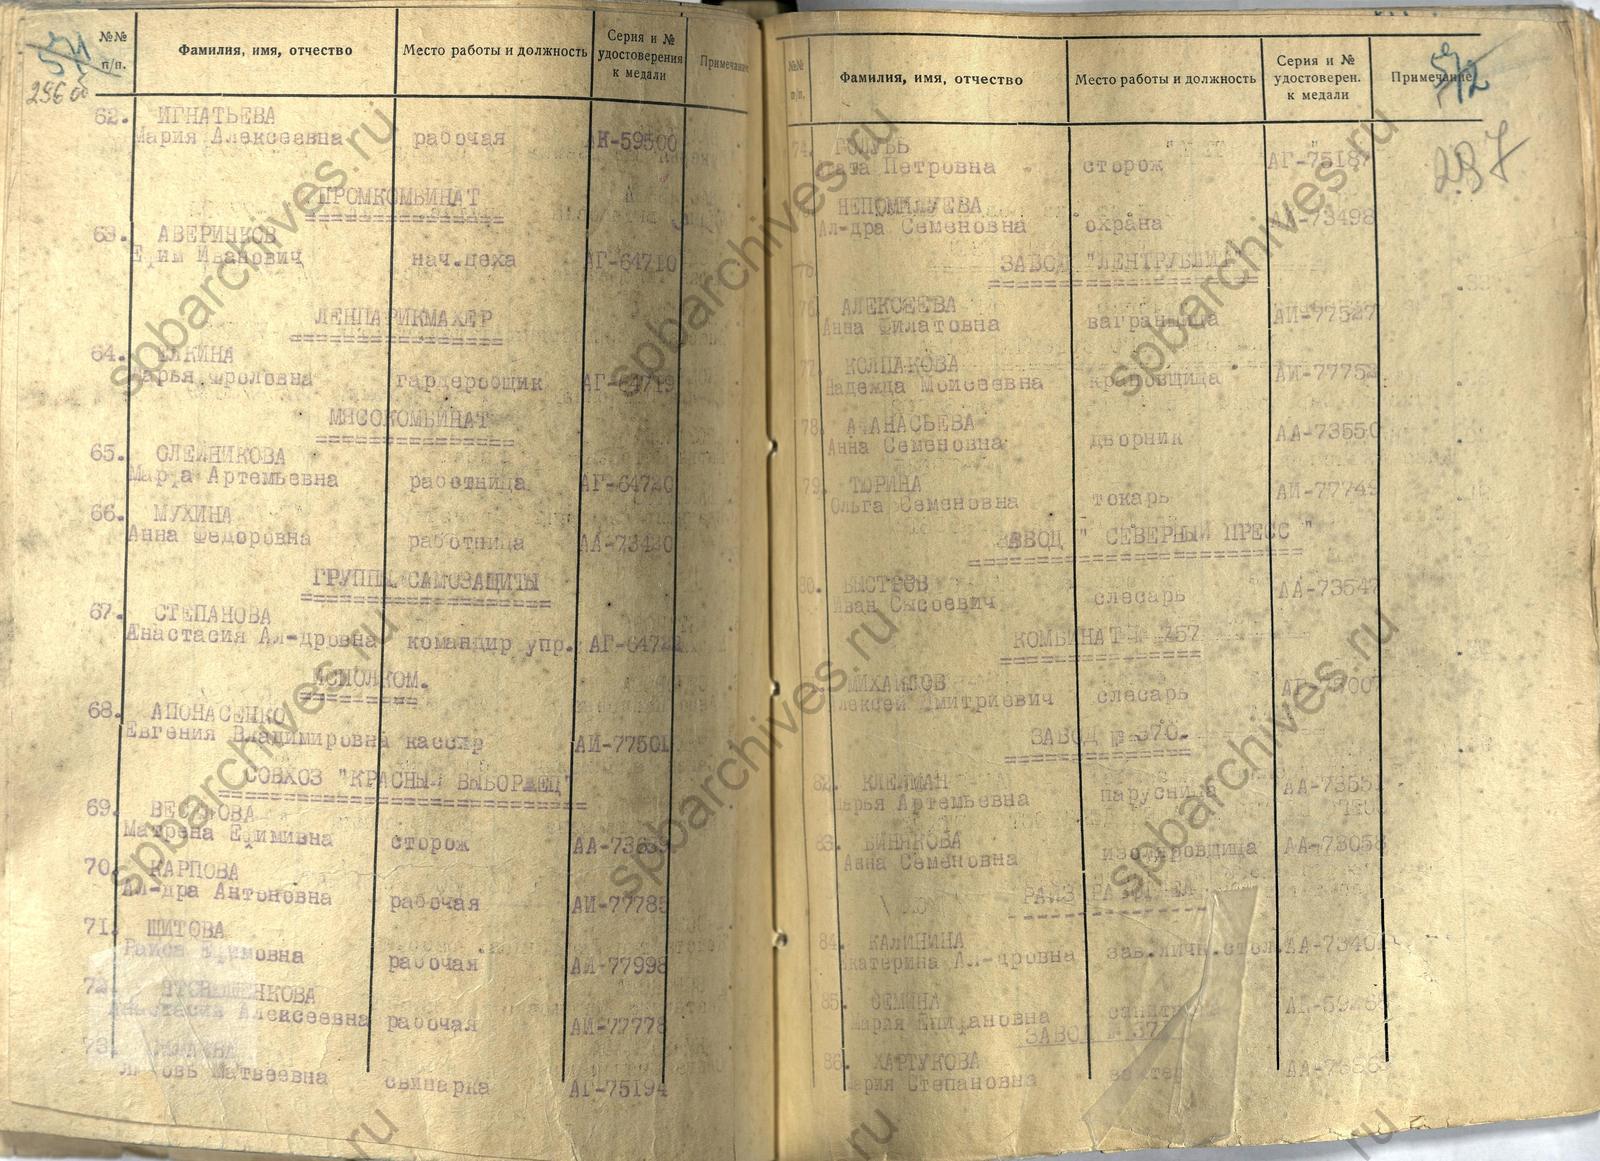 571
296 об
№№ п/п.
Фамилия, имя, отчество
Место работы и должность
Серия и № удостоверения к медали
Примечание
62. ИГНАТЬЕВА
Мария Алексеевна рабочая АИ-59500
ПРОМКОМБИНАТ
63. АВЕРИНКОВ
Ефим Иванович нач.цеха АГ-64710
ЛЕНПАРИКМАХЕР
64.
Марья Фроловна гардеробщик АГ-64719
МЯСОКОМБИНАТ
65. ОЛЕЙНИКОВА
Марфа Артемьевна работница АГ-64720
66. МУХИНА
Анна Федоровна работница АА-73430
ГРУППЫ САМОЗАЩИТЫ
67. СТЕПАНОВА
Анастасия Ал-дровна командир упр. АГ-64722
ИСПОЛКОМ.
68. АПОНАСЕНКО
Евгения Владимировна кассир АИ-77501
СОВХОЗ "КРАСНЫЙ ВЫБОРЖЕЦ"
69.
Матрена Ефимивна сторож
70. КАРПОВА
Ал-дра Антоновна рабочая АИ-77785
71. ШИТОВА
Раиса Ефимовна рабочая АИ-77998
72.
Анастасия Алексеевна рабочая АИ-77778
73.
Любовь Матвеевна свинарка АГ-75194
572
297
№№ п/п.
Фамилия, имя, отчество
Место работы и должность
Серия и № удостоверен. к медали
Примечание
74. ГОЛУБЬ
Агата Петровна сторож АГ-75187
НЕПОМИЛУЕВА
Ал-дра Семеновна охрана АА-73498
ЗАВОД "ЛЕНТРУБЛИТ"
76. АЛЕКСЕЕВА
Анна Филатовна вагранщица АИ-77527
77. КОЛПАКОВА
Надежда Моисеевна крановщица
78. АФАНАСЬЕВА
Анна Семеновна дворник АА-73550
79. ТЮРИНА
Ольга Семеновна токарь АИ-77749
ЗАВОД " СЕВЕРНЫЙ ПРЕСС "
80. БЫСТРОВ
Иван Сысоевич слесарь АА-73547
КОМБИНАТ № 757
МИХАЙЛОВ
Алексей Дмитриевич слесарь
ЗАВОД № 370.
82. КЛЕЙМАН
Марья Артемьевна парусница
83. ВИНЯКОВА
Анна Семеновна изолировщица АА-73058
84. КАЛИНИНА
Екатерина Ал-дровна зав.личн.стол.
85. СЕМИНА
Мария Епифановна
ЗАВОД № 37
86. ХАРТУКОВА
Мария Степановна вахтер
spbarchives.ru
spbarchives.ru
spbarchives.ru
spbarchives.ru
spbarchives.ru
spbarchives.ru